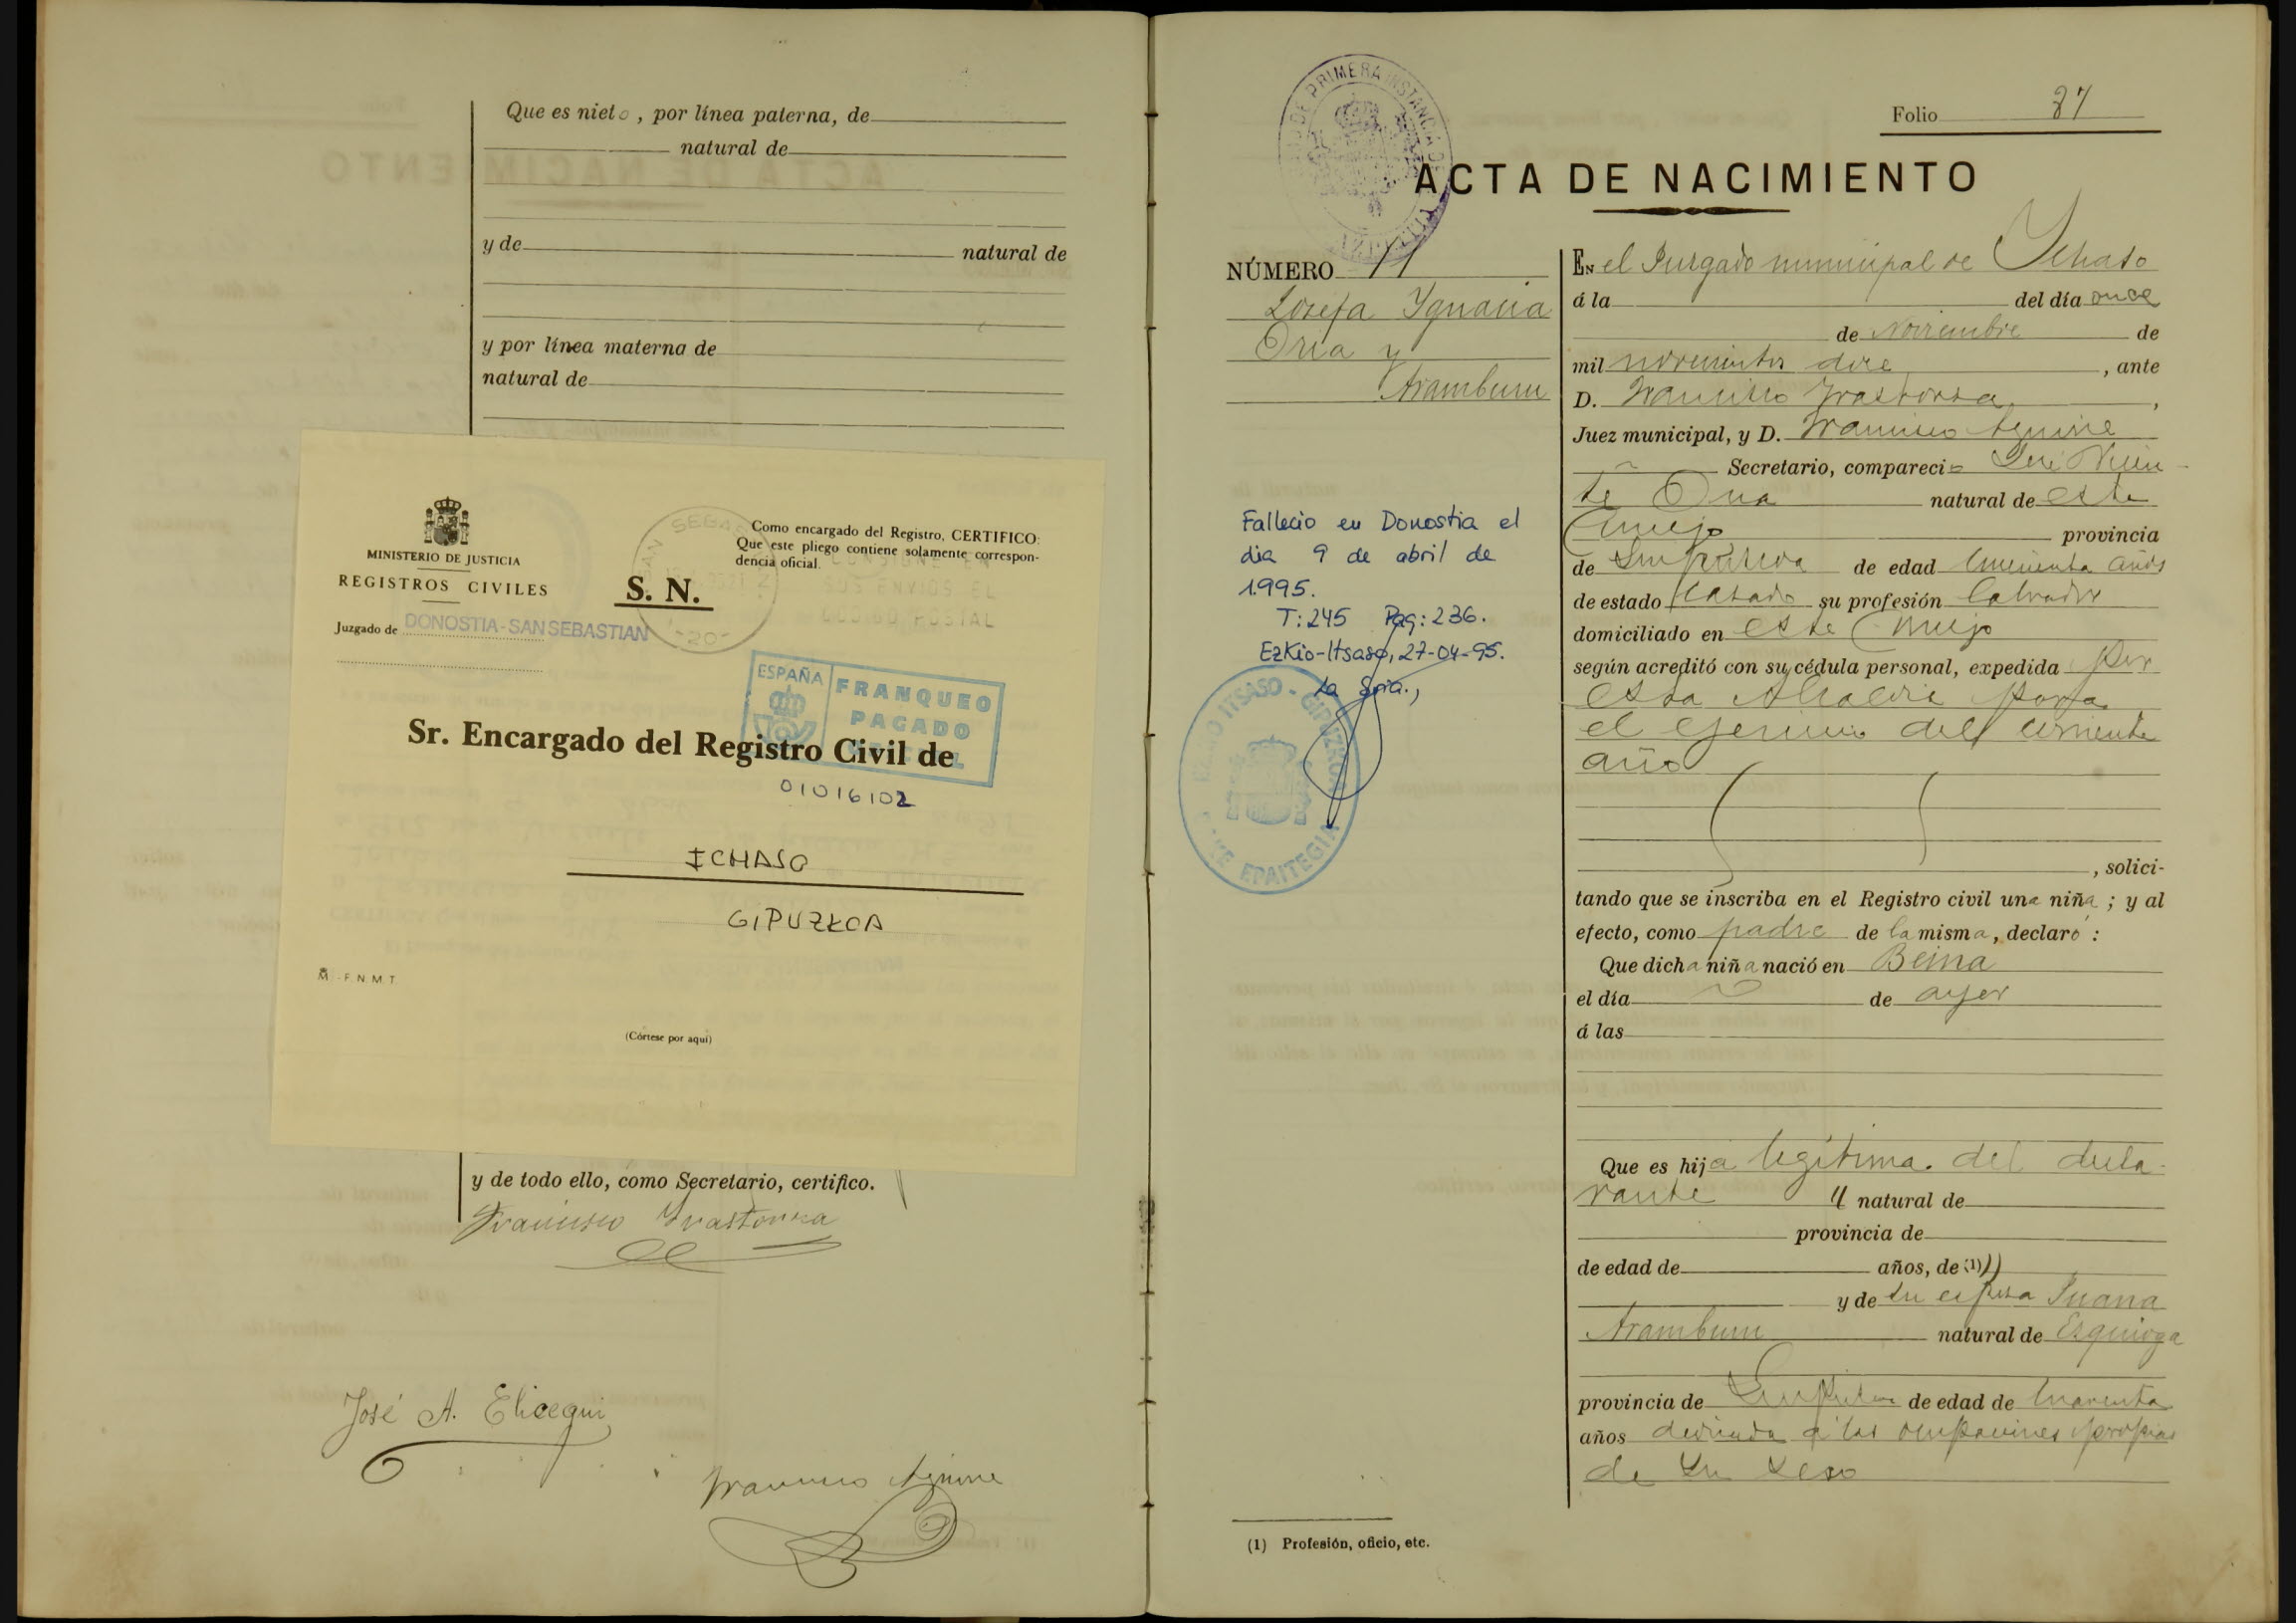 Que es nieto, por línea paterna, de
natural de
y de natural de
y por línea materna de
natural de
MINISTERIO DE JUSTICIA
REGISTROS CIVILES
Juzgado de DONOSTIA-SAN SEBASTIAN
S. N.
SAN SEBAS
-20-
Como encargado del Registro, CERTIFICO:
Que este pliego contiene solamente correspon-
dencia oficial.
CONSIGNE EN
SUS ENVIOS EL
CODIGO POSTAL
ESPAÑA
FRANQUEO
PAGADO
Sr. Encargado del Registro Civil de
01016102
ICHASO
GIPUZKOA
M - F. N. M. T.
(Córtese por aquí)
y de todo ello, como Secretario, certifico.
Francisco Yrastorza
José A. Elicegui
Francisco Aguirre
Folio 27
DE PRIMERA INSTANCIA DE
ACTA DE NACIMIENTO
NÚMERO 11
Josefa Ygnacia
Oria y
Aramburu
Fallecio en Donostia el
dia 9 de abril de
1.995.
T: 245 Pag: 236.
Ezkio-Itsaso, 27-04-95.
La Sria.,
ITSASO - GIPUZKOA
EPAITEGIA
EN el Juzgado municipal de Ychaso
á la del día once
de Noviembre de
mil novecientos doce, ante
D. Francisco Yrastorza,
Juez municipal, y D. Francisco Aguirre
Secretario, compareció José Vicen-
te Oria natural de este
Concejo provincia
de Guipúzcoa de edad cincuenta años
de estado casado su profesión labrador
domiciliado en este Concejo
según acreditó con su cédula personal, expedida por
esta Alcaldia para
el ejercicio del corriente
año
, solici-
tando que se inscriba en el Registro civil una niña; y al
efecto, como padre de la misma, declaró:
Que dicha niña nació en Beina
el día de ayer
á las
Que es hija legítima del decla-
rante natural de
provincia de
de edad de años, de (1)
y de su esposa Juana
Aramburu natural de Esquioga
provincia de Guipúzcoa de edad de cuarenta
años dedicada á las ocupaciones propias
de su sexo
(1) Profesión, oficio, etc.